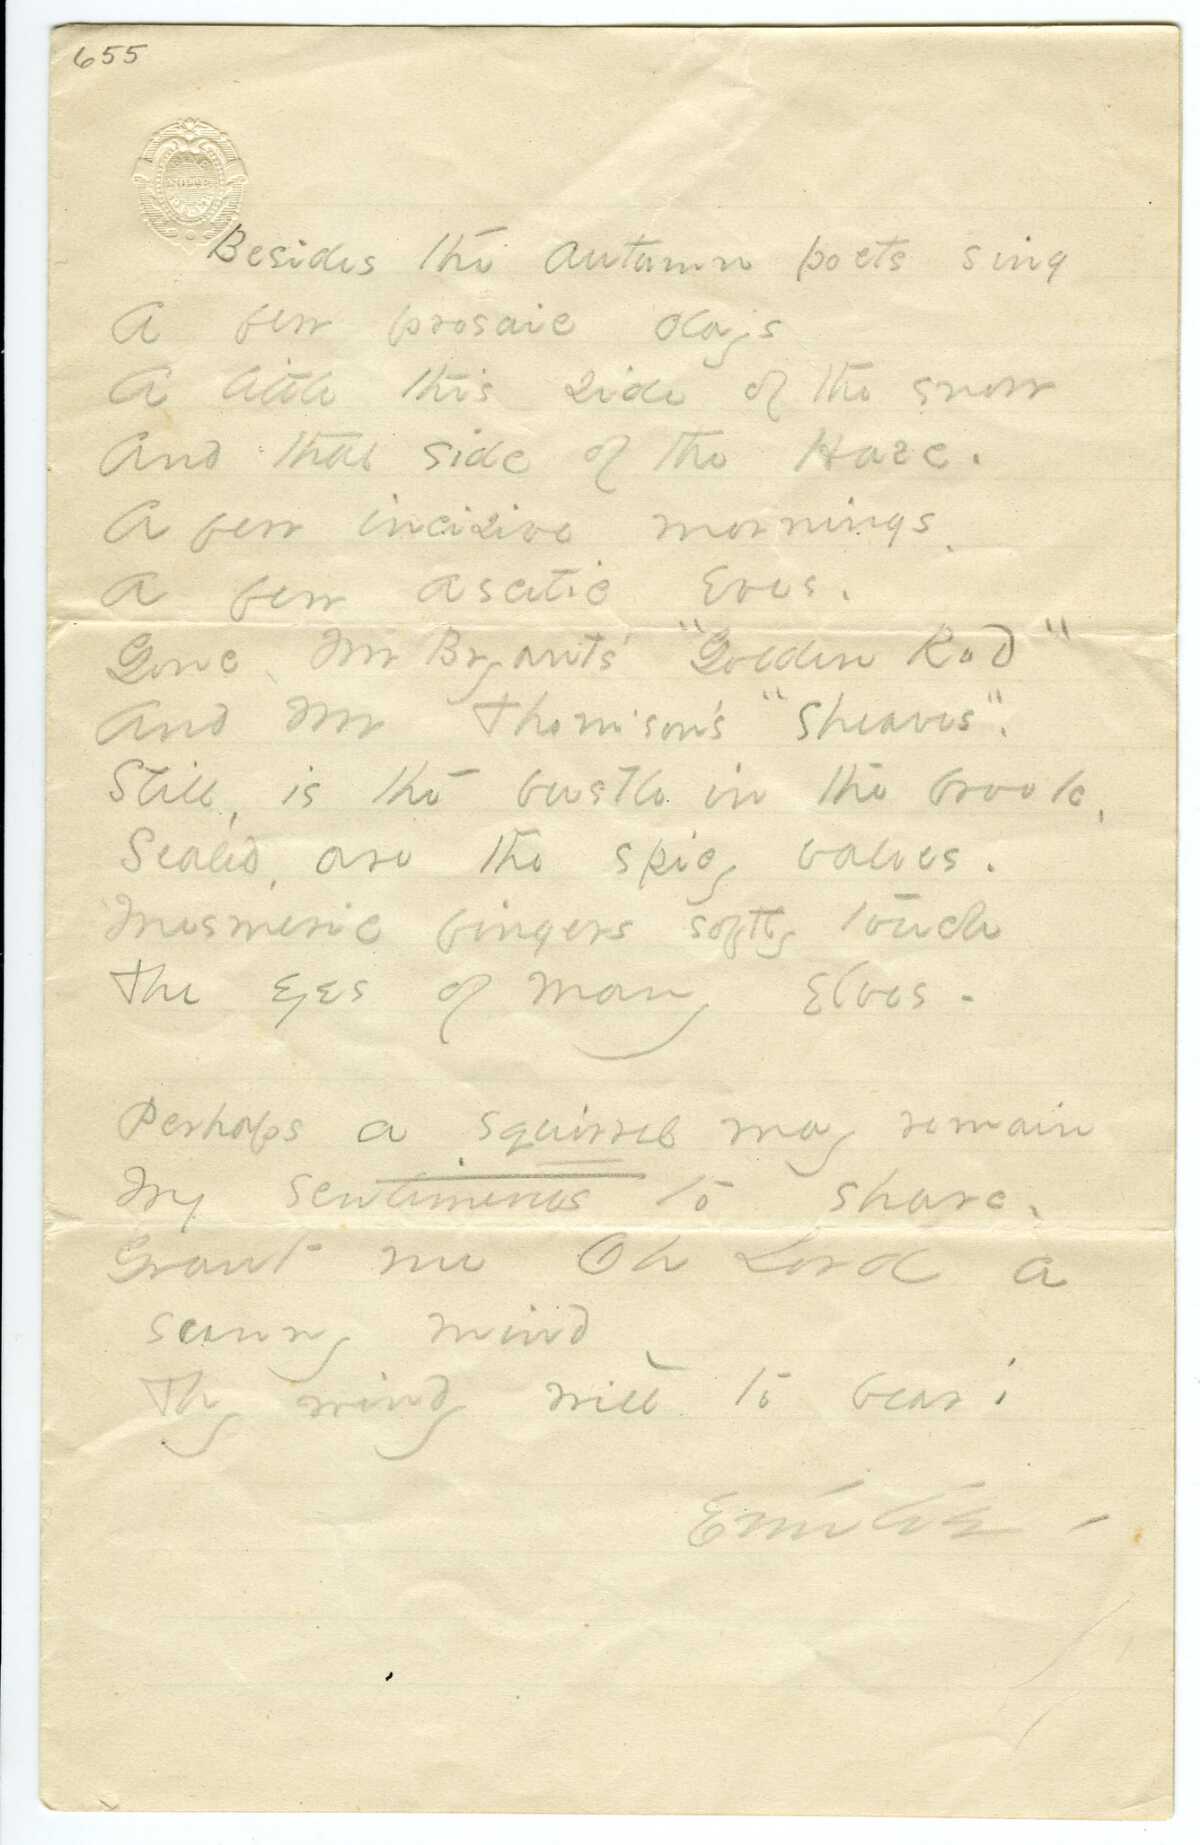 655
Besides the Autumn poets sing
A few prosaic days
A little this side of the snow
And that side of the Haze.
A few incisive mornings,
A few Ascetic Eves.
Gone, Mr Bryant's "Golden Rod"
And Mr Thomson's "Sheaves".
Still, is the bustle in the brook,
Sealed, are the spicy valves.
Mesmeric fingers softly touch
The Eyes of Many Elves.
Perhaps a squirrel may remain
My sentiments to share.
Grant me Oh Lord a
sunny mind
Thy windy will to bear!
Emilie -